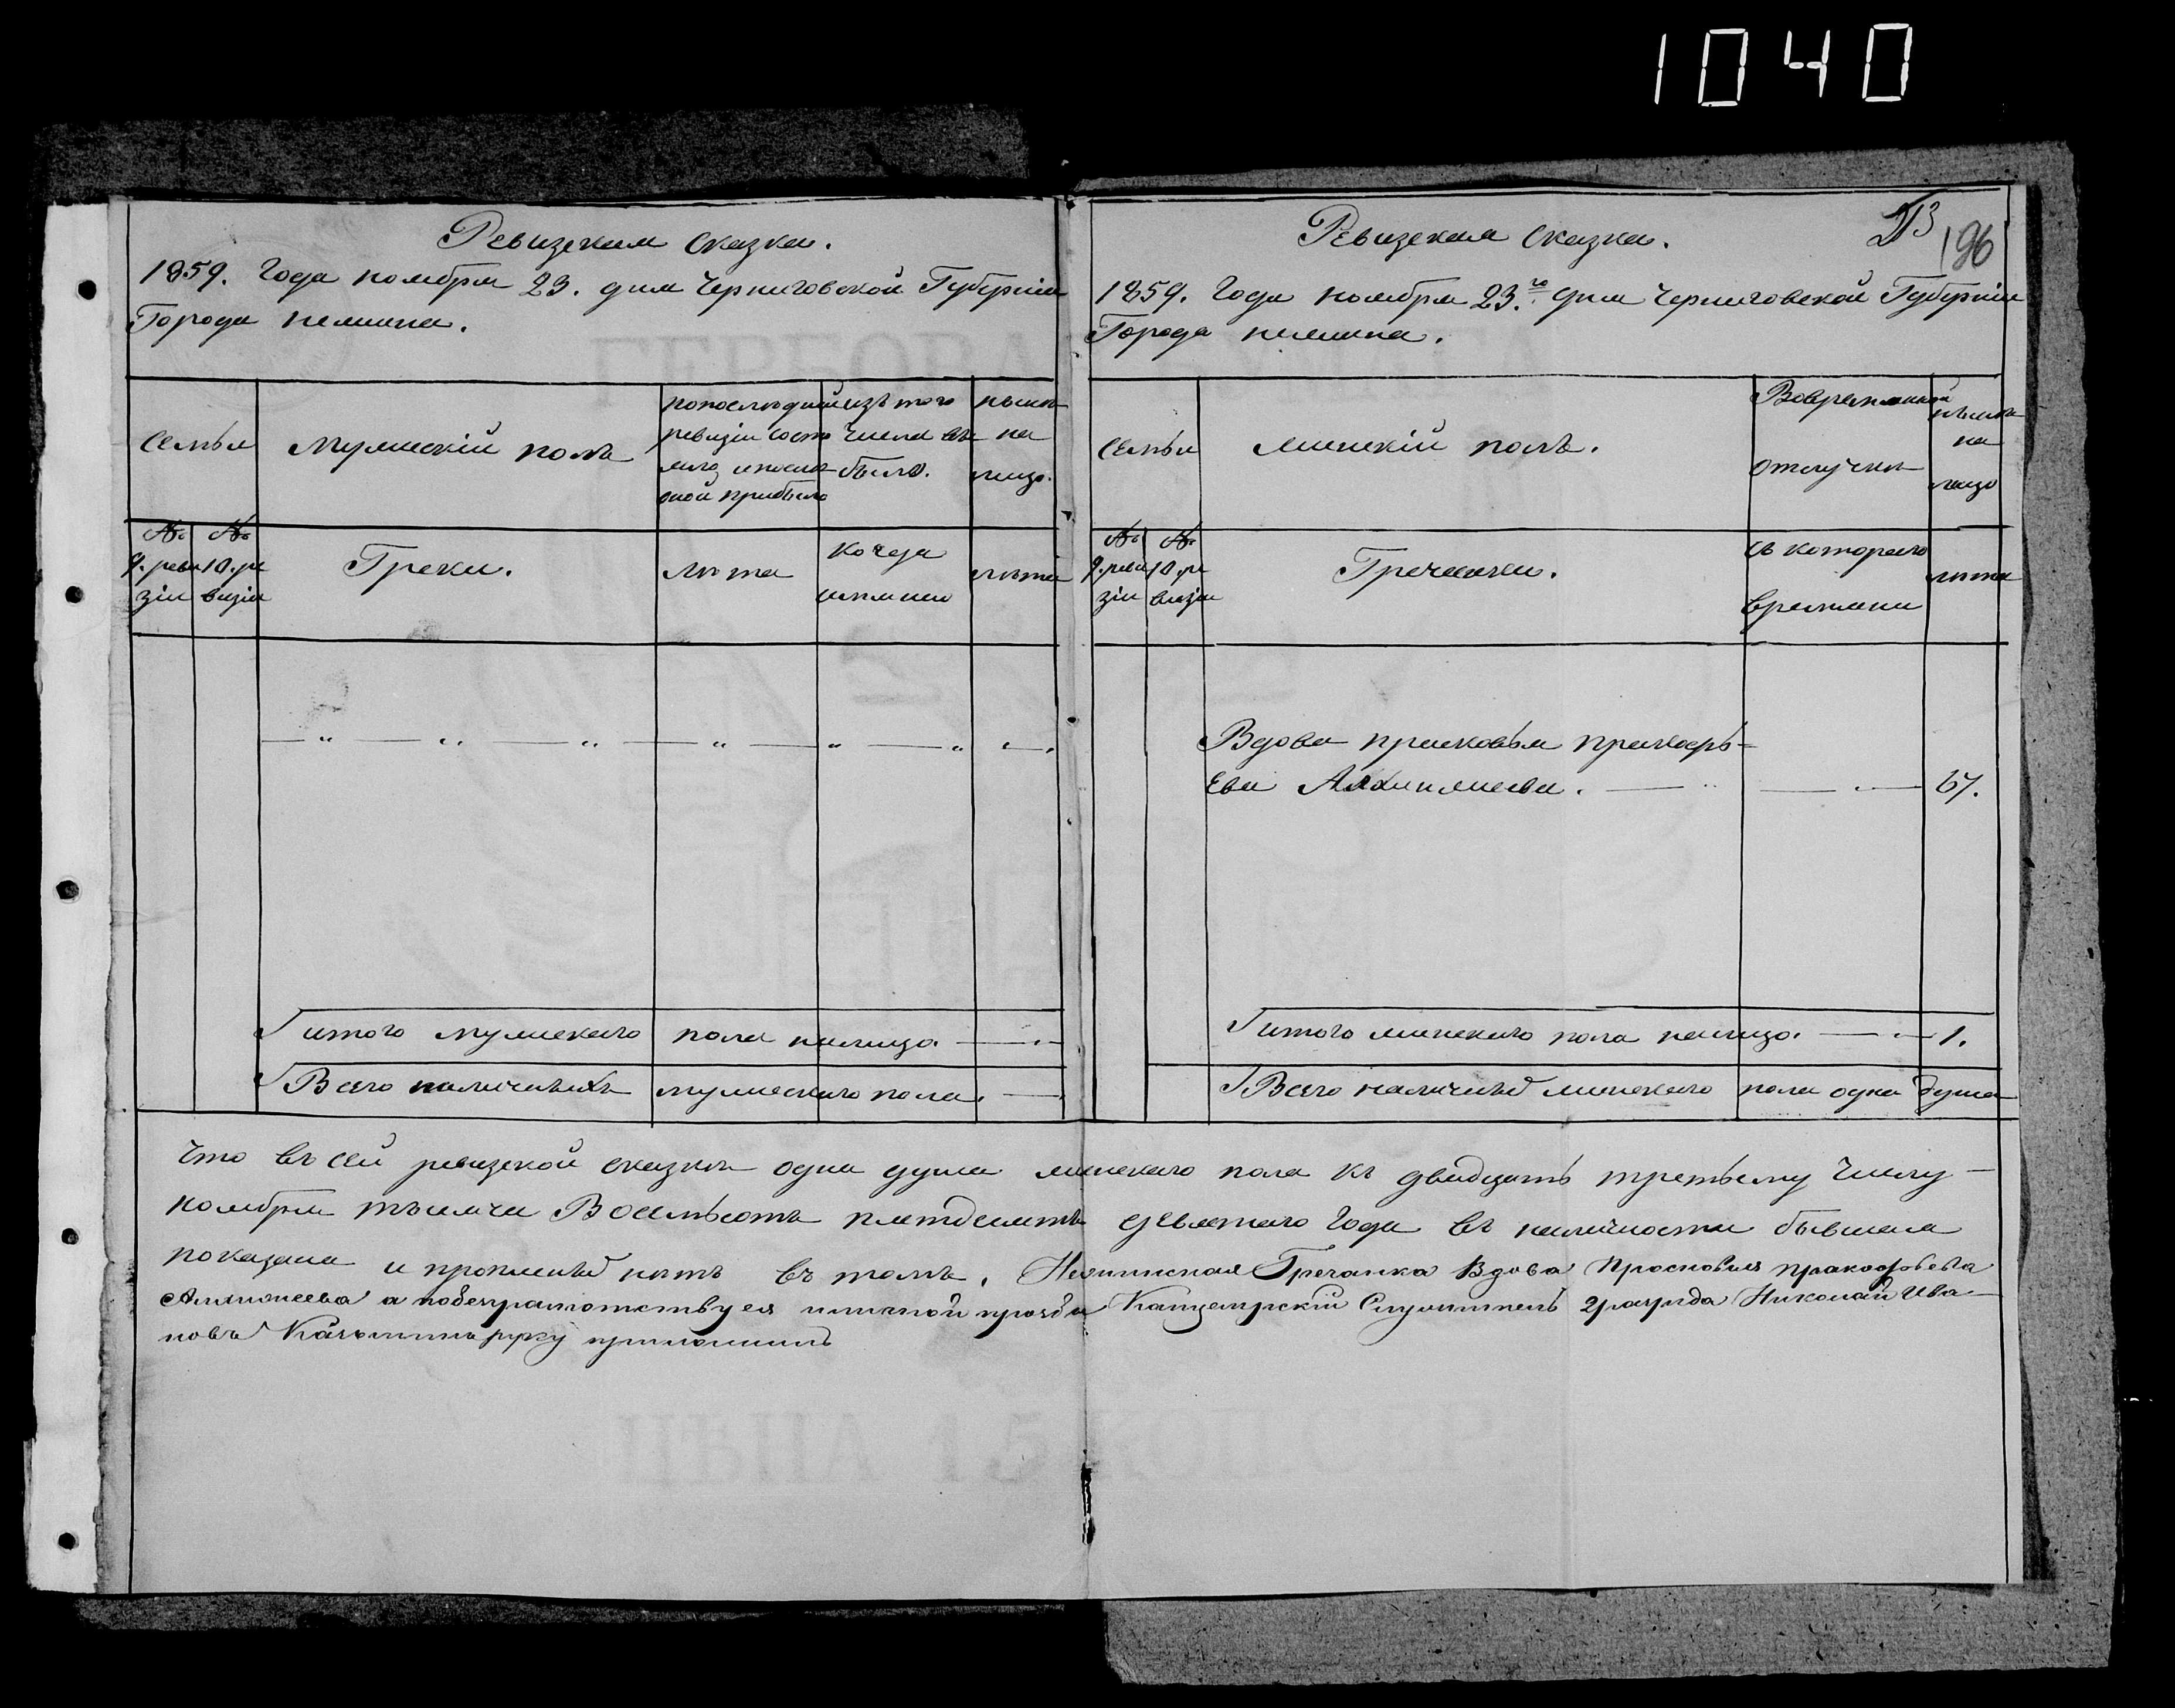 1040
Ревизская Сказка.
1859. Года ноября 23. дня Черниговской Губерніи
Города нежина.
Семья
Мужескій полъ
попослѣдней
ревизіи состо
яло, и после
оной прибыло
изъ того
числа вы
было.
нынѣ
на
лицо.
№ 9. реви
зіи
№ 10. ре
визіи
Греки.
лѣта
когда
именно
лѣта
Итого мужескаго пола налицо.
Всего наличныхъ мужескаго пола.
196
Ревизская Сказка.
1859. Года ноября 23го дня Черниговской Губерніи
Города нежина.
Семья
женскій полъ.
Вовременной
отлучке
нынѣ
на
лицо
№ 9. реви
зіи
№ 10. ре
визіи
Гречанки.
съ котораго
времени
лѣта
Вдова прасковья пракофь=
ева 67.
Итого женскаго пола налицо. 1.
Всего наличныхъ женскаго пола одна душа
Что въ сей ревизской сказкѣ одна душа женскаго пола къ двадцать третьему числу
ноября тысяча Восемьсотъ пятдесятъ девятаго Года въ наличности бывшая
показана и прописныхъ нѣтъ въ томъ. Нежинская Гречанка Вдова Просковия пракофьева
а побезграматству ея и личной прозбы Канцелярскій Служитель 2 разряда Николай Ива-
новъ руку приложилъ